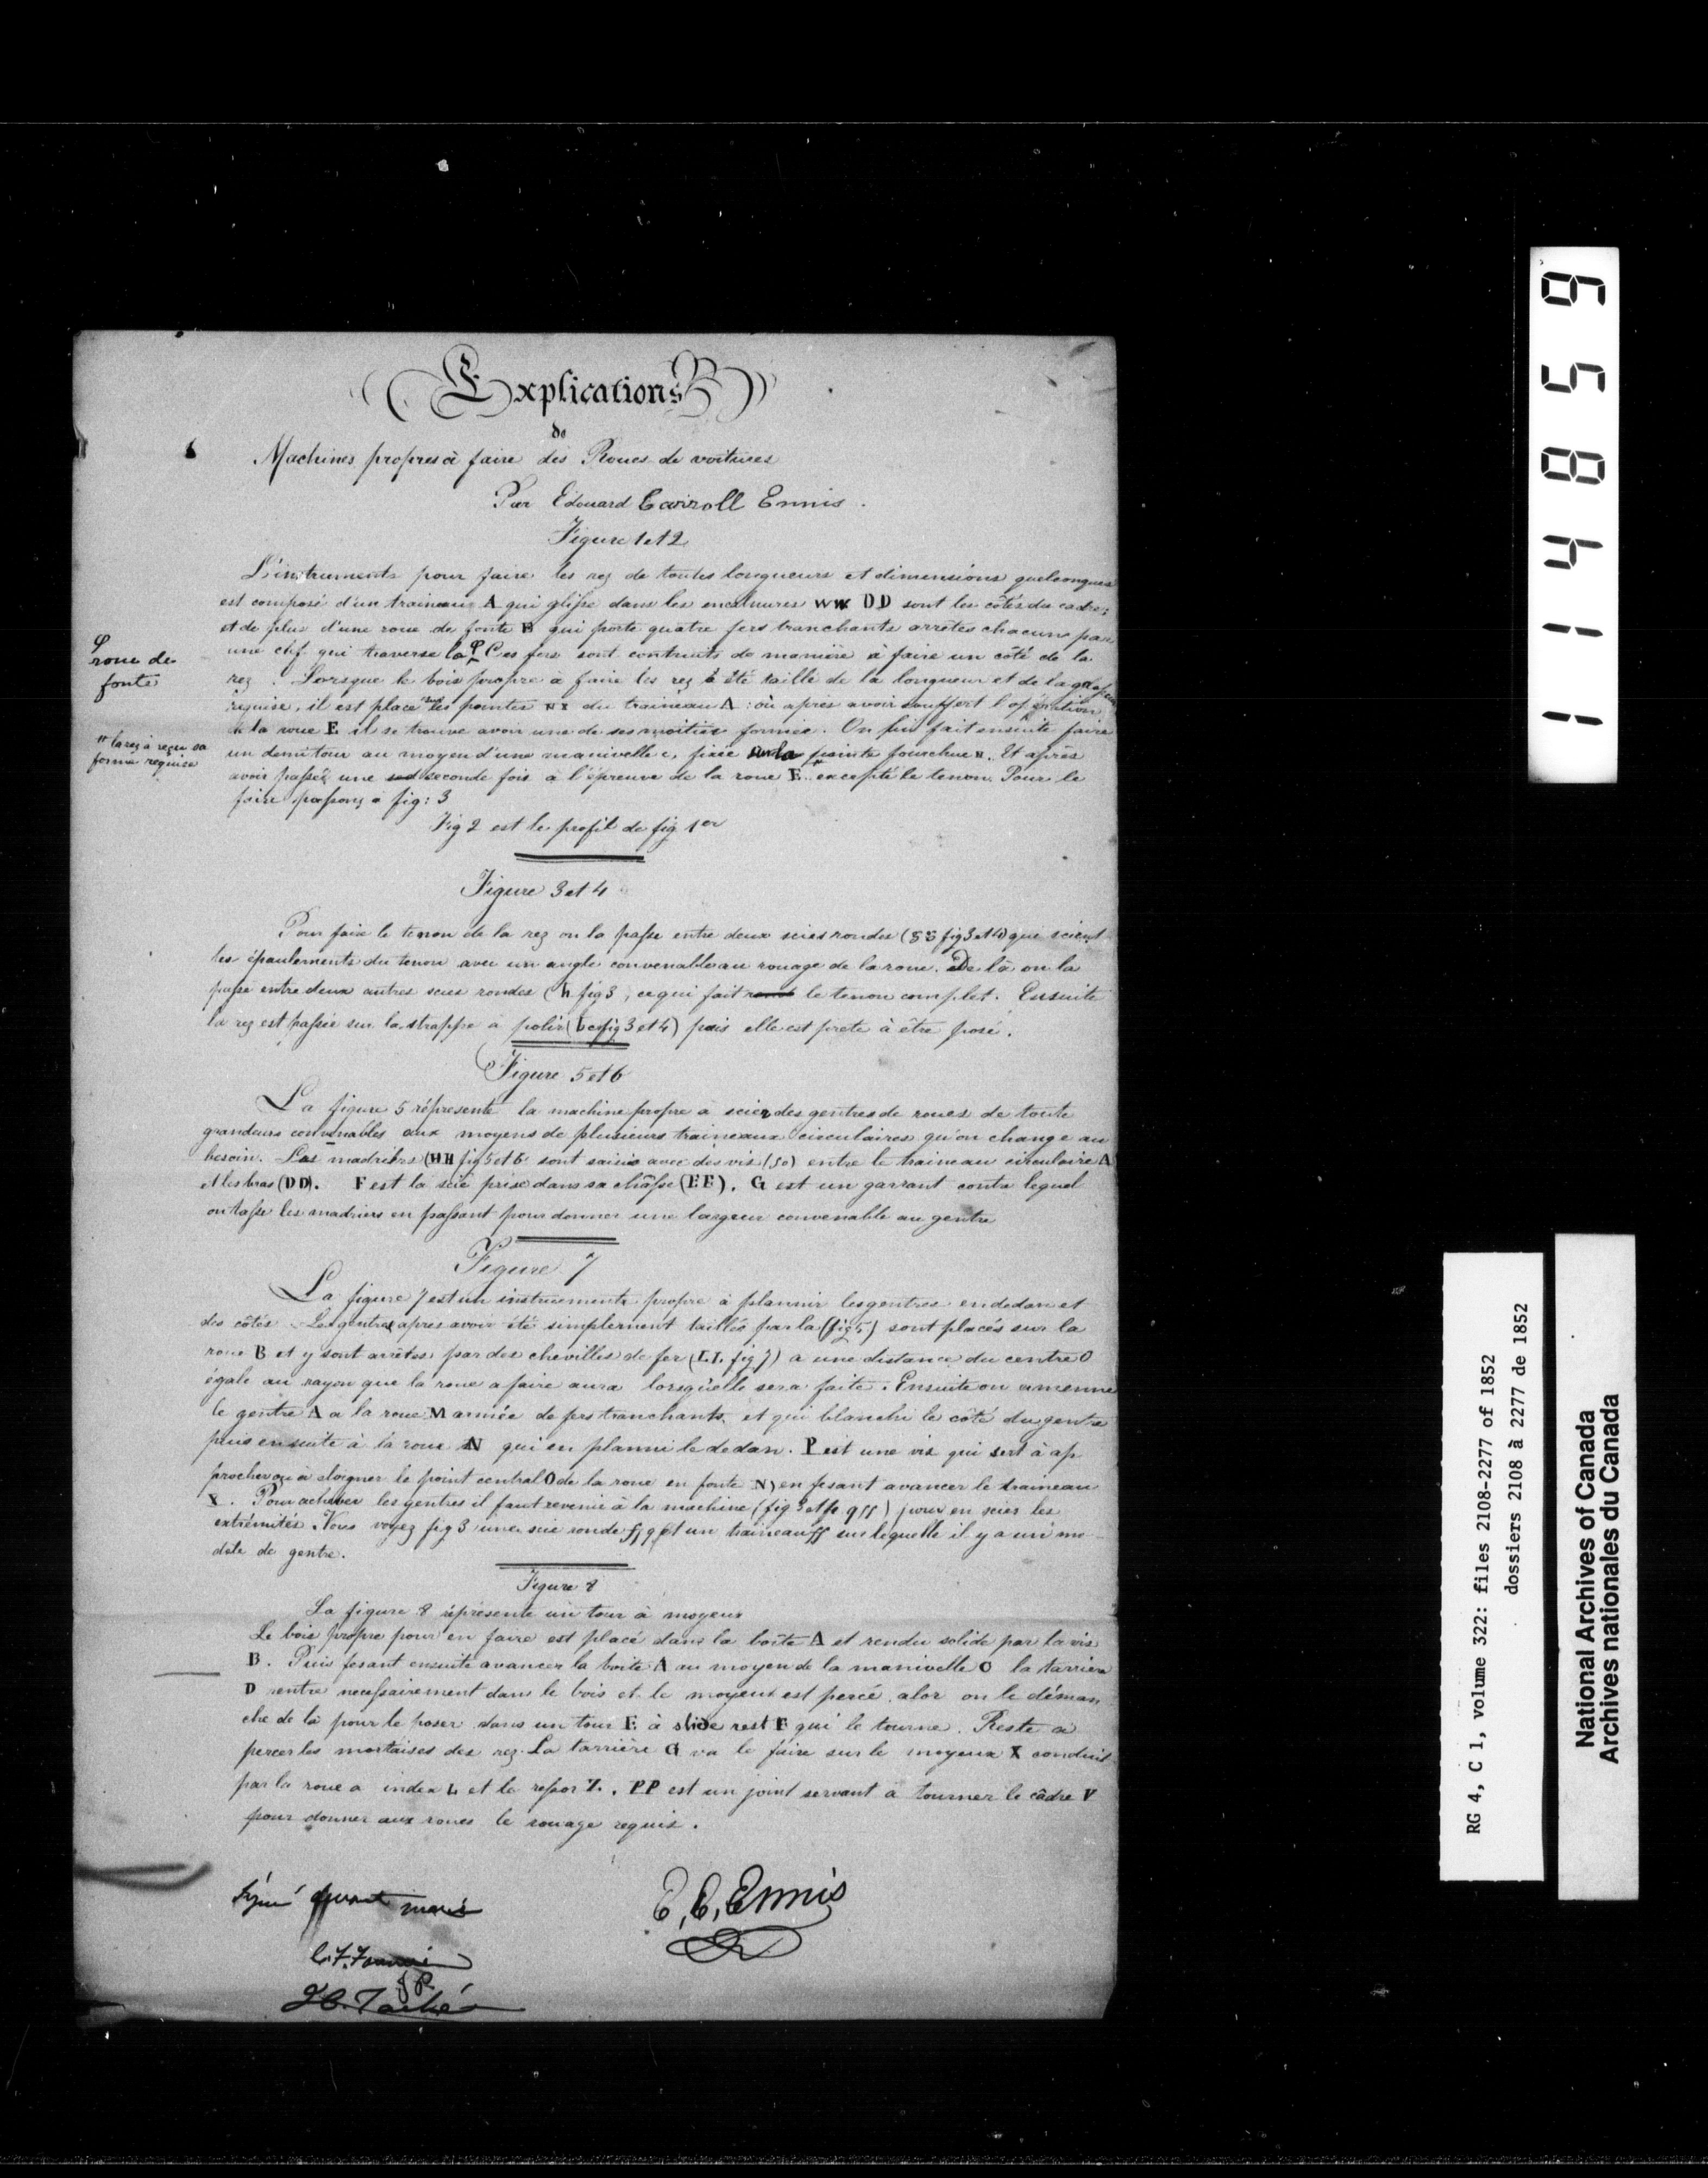 Explications
de
Machines propres à faire des Roues de voitures
Par Edouard Carroll Ennis.
Figure 1 et 2
L'instruments pour faire les rez de toutes longueurs et dimensions quelconques
est composé d'un traineau A qui glisse dans les encalnures WW DD sont les côtés du cadre;
et de plus d'une roue de fonte B qui porte quatre fers tranchants arrêtés chacuns par
une clef qui traverse la ₽ Ces fers sont contruits de manière à faire un côté de la
₽ roue de
fonte
rez. Lorsque le bois propre à faire les rez à été taillé de la longueur et de la
requise, il est placé sur les pointes NX du traineau A: où après avoir souffert l'opération
de la roue E il se trouve avoir une de ses moitiés formée. On lui fait ensuite faire
" la rez à reçu sa
forme requise
un demi tour au moyen d'une manivelle c, fixée pointe fourchue n. Et après
avoir passée une seconde fois à l'épreuve de la roue E " excepté le tenon. Pour le
faire passons à fig: 3
Fig 2 est le profil de fig 1er
Figure 3 et 4
Pour faire le tenon de la rez on la passe entre deux scies rondes (88 fig 3 et 4) qui scient
les épaulements du tenon avec un angle convenable au rouage de la roue. De là on la
passe entre deux autres scies rondes (h fig 3, ce qui fait le tenon complet. Ensuite
la rez est passée sur la strappe à polir (bc fig 3 et 4) puis elle est prete à être posé.
Figure 5 et 6
La figure 5 répresente la machine propre à scier des gentres de roues de toute
grandeurs convenables aux moyens de plusieurs traineaux circulaires qu'on change au
besoin. Les madriers (HH fig 5 et 6 sont saisis avec des vis (So) entre le traineau circulaire A
et les bras (DD). F est la scie prise dans sa châsse (EE). G est un garrant contre lequel
on tasse les madriers en passant pour donner une largeur convenable au gentre
Figure 7
La figure 7 est un instruments propre à plannir les gentres en dedan et
des côtés. Les gentres apres avoir été simplement taillés par la (fig 5) sont placés sur la
roue B et y sont arrêtés par des chevilles de fer (LL fig 7) a une distance du centre O
égale au rayon que la roue a faire aura lorsqu'elle sera faite. Ensuite on amenne
le gentre A a la roue M armée de fers tranchants, et qui blanchi le côté du gentre
puis ensuite à la roue N qui en planni le dedan. P est une vis qui sert à ap
procher ou à éloigner le point central O de la roue en fonte N) en fesant avancer le traineau
X. Pour achever les gentres il faut revenir à la machine (fig 3 et qss) pour en scier les
extrémités. Vous voyez fig 3 une scie ronde et un traineau ss sur lequelle il y a un mo
dele de gentre.
Figure 8
La figure 8 répresente un tour à moyeux
Le bois propre pour en faire est placé dans la boîte A et rendu solide par la vis
B. Puis fesant ensuite avancer la boite A au moyen de la manivelle O la tarrière
D rentre necessairement dans le bois et le moyeux est percé alor on le déman
che de là pour le poser dans un tour E à slide rest F qui le tourne. Reste a
percer les mortaises des rez. La tarrière G va le faire sur le moyeux X conduit
par la roue a index L et le ressor Z. PP est un joint servant a tourner le câdre V
pour donner aux roues le rouage requis.
Signé devant mois
E. C. Ennis
J. P.
J. C. Taché
114859
RG 4, C 1, volume 322: files 2108-2277 of 1852
dossiers 2108 à 2277 de 1852
National Archives of Canada
Archives nationales du Canada